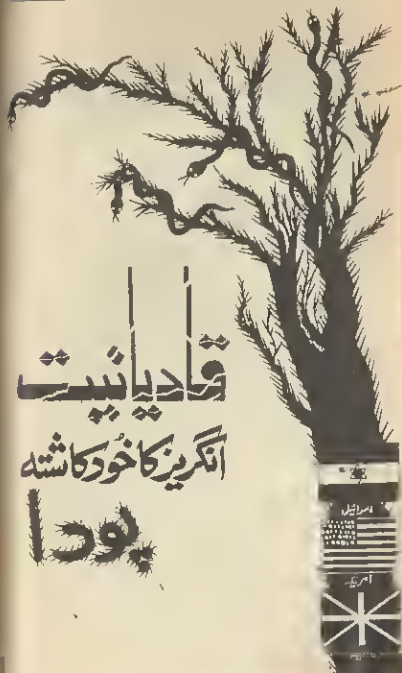 قادیانیت
انگریز کا خود کاشتہ
پودا
اسرائیل
امریکہ